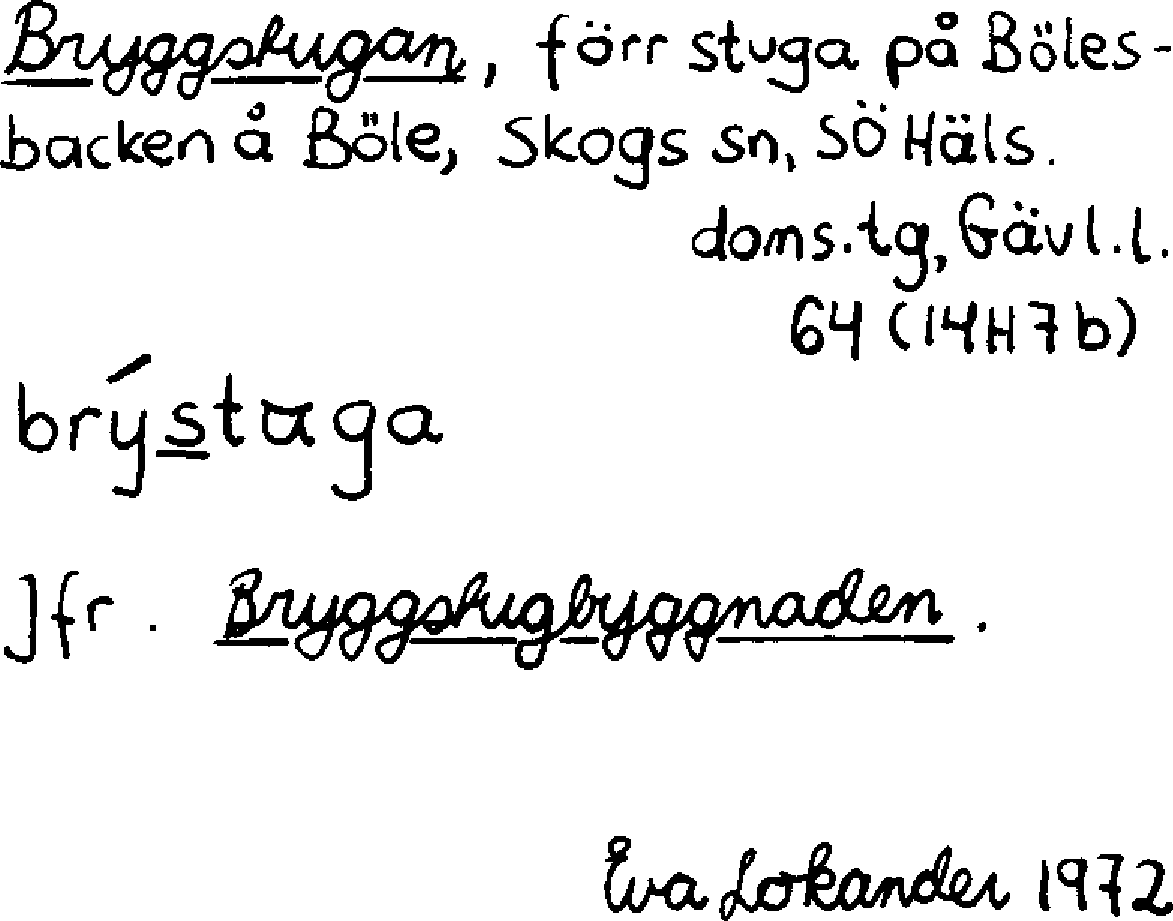 Bryggstugan, förr stuga på Böles-
backen å Böle, Skogs sn, SÖ Häls.
doms.tg, Gävl.l.
64 (14H7b)
brýstuga
Jfr. Bryggstugbyggnaden.
Eva Lokander 1972